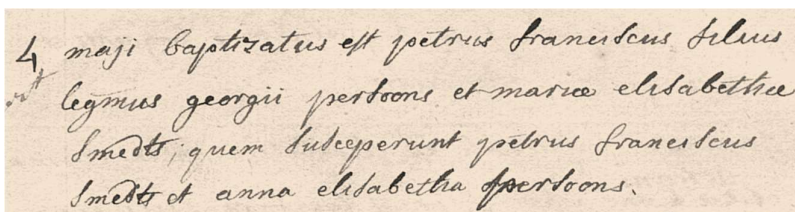 4 maji baptizatus est petrus franciscus filius
legmus georgii persoons et mariæ elisabethæ
Smedts, quem susceperunt petrus franciscus
Smedts et anna elisabetha persoons.